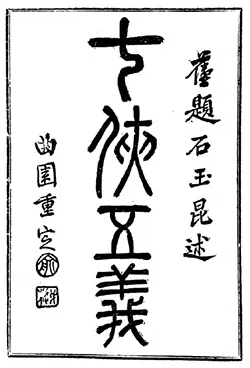 舊題石玉昆述
七俠五義
曲園重定
俞